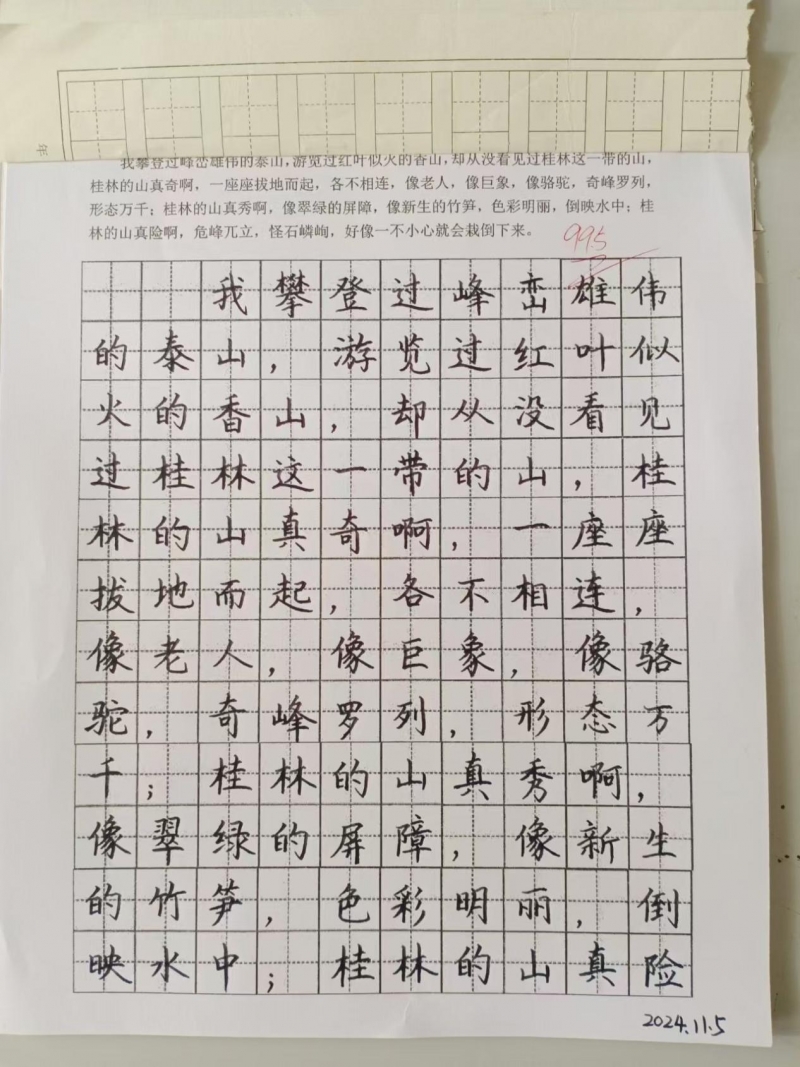 我攀登过峰峦雄伟的泰山，游览过红叶似火的香山，却从没看见过桂林这一带的山，
桂林的山真奇啊，一座座拔地而起，各不相连，像老人，像巨象，像骆驼，奇峰罗列，
形态万千；桂林的山真秀啊，像翠绿的屏障，像新生的竹笋，色彩明丽，倒映水中；桂
林的山真险啊，危峰兀立，怪石嶙峋，好像一不小心就会栽倒下来。
99.5
我攀登过峰峦雄伟
的泰山，游览过红叶似
火的香山，却从没看见
过桂林这一带的山，桂
林的山真奇啊，一座座
拔地而起，各不相连，
像老人，像巨象，像骆
驼，奇峰罗列，形态万
千；桂林的山真秀啊，
像翠绿的屏障，像新生
的竹笋，色彩明丽，倒
映水中；桂林的山真险
2024.11.5